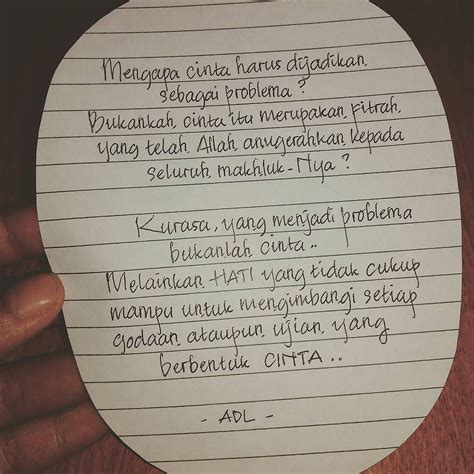 Mengapa cinta harus dijadikan
sebagai problema?
Bukankah, cinta itu merupakan fitrah
yang telah Allah anugerahkan kepada
seluruh makhluk-Nya?
Kurasa, yang menjadi problema
bukanlah cinta..
Melainkan HATI yang tidak cukup
mampu untuk mengimbangi setiap
godaan ataupun ujian yang
berbentuk CINTA..
- ADL -